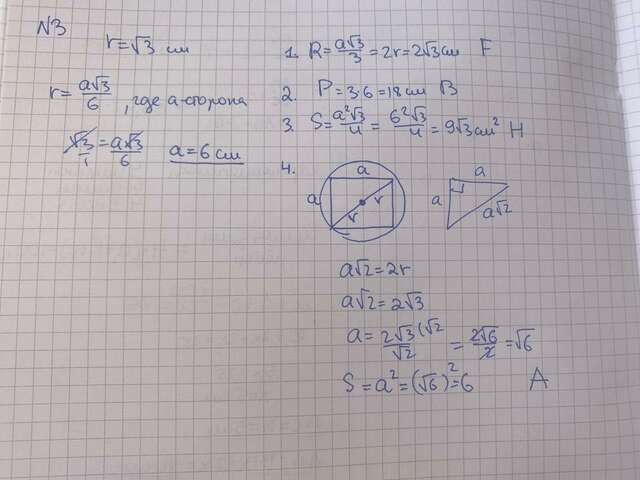 N3
r = √3 см
r = a√3/6, где a-сторона
√3/1 = a√3/6 a = 6 см
1. R = a√3/3 = 2r = 2√3 см F
2. P = 3·6 = 18 см B
3. S = a²√3/4 = 6²√3/4 = 9√3 см² H
4.
a a
a a
r r a√2
a√2 = 2r
a√2 = 2√3
a = 2√3(√2/√2 = 2√6/2 = √6
S = a² = (√6)² = 6 A